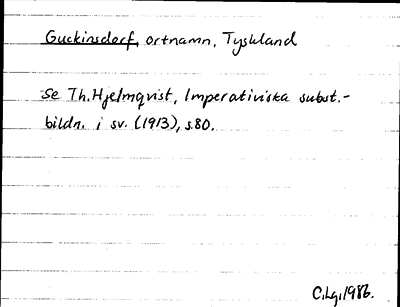 Guckinsdorf, ortnamn, Tyskland
Se Th. Hjelmqvist, Imperativiska subst.-
bildn. i sv. (1913), s.80.
C.Lg.1986.